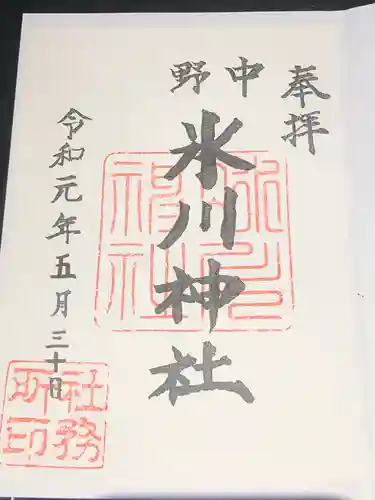 奉拝
中野
氷川神社
令和元年五月三十日
氷川神社
社務所印